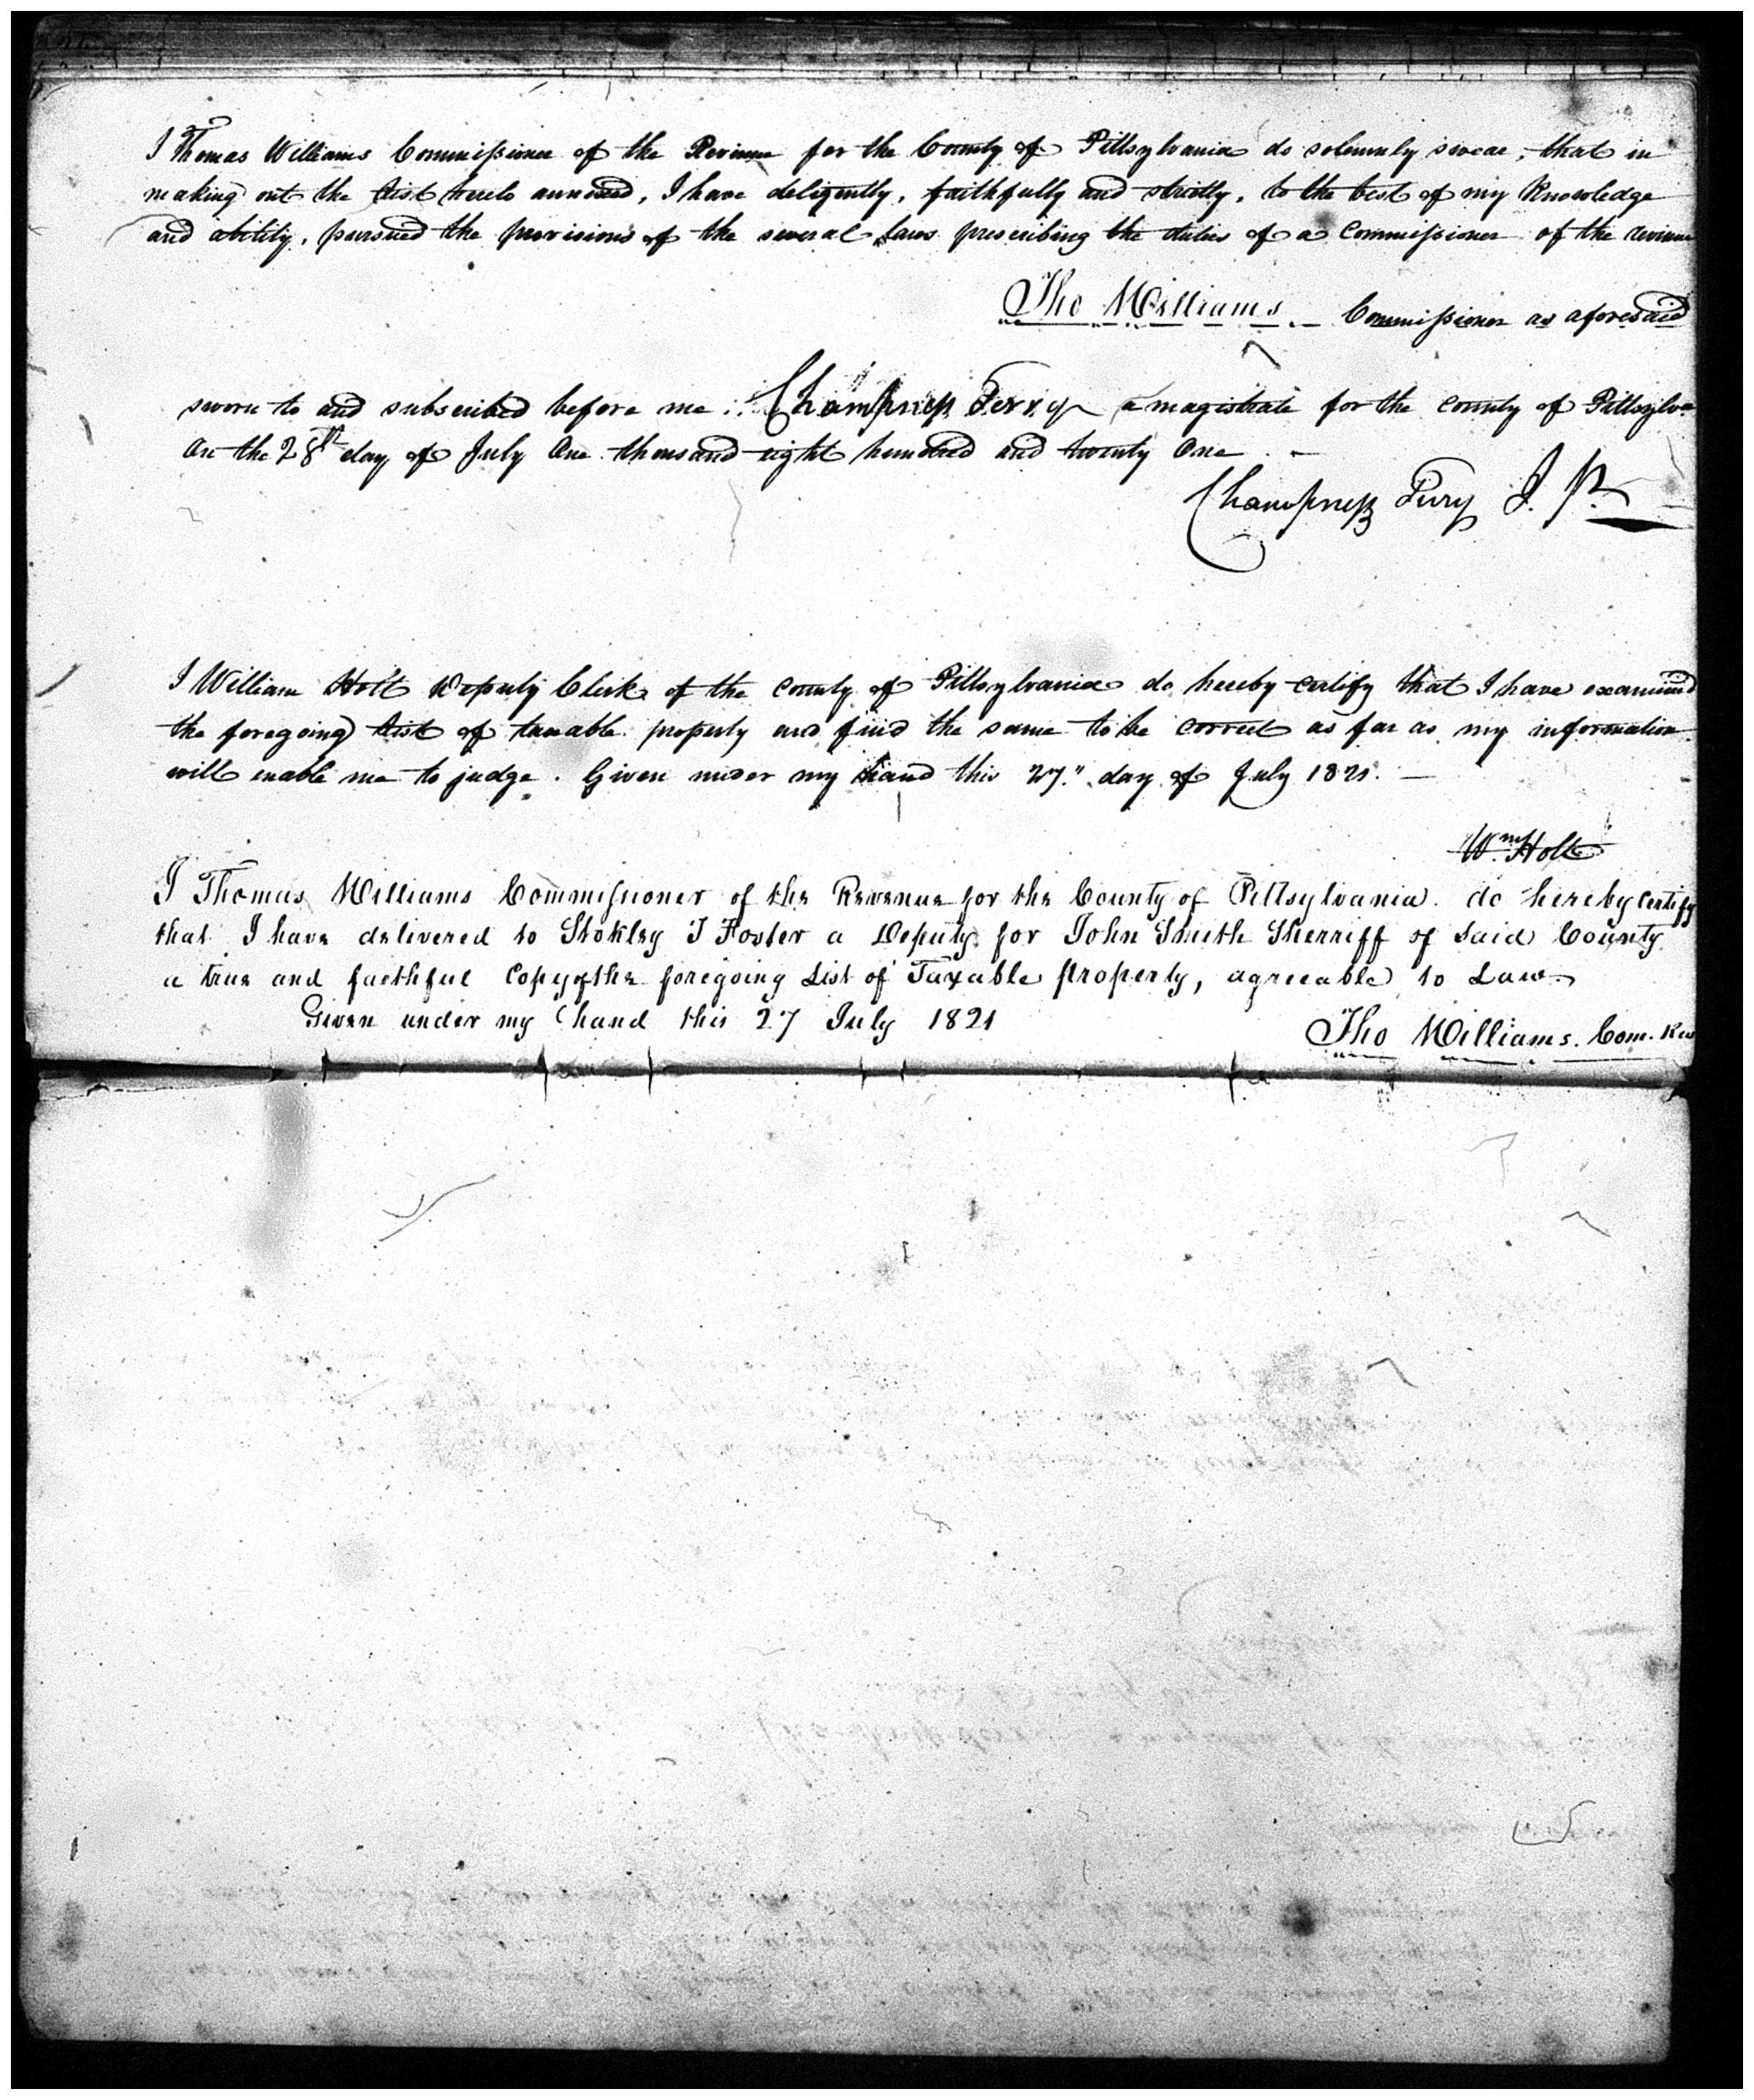 I Thomas Williams Commissioner of the Revenue for the County of Pittsylvania do solemnly swear, that in
making out the List hereto annexed, I have deligently, faithfully and strictly, to the best of my Knowledge
and ability, pursued the provisions of the several Laws prescribing the duties of a Commissioner of the revenue
Tho Williams. Commissioner as aforesaid
sworn to and subscribed before me Champness Terry a magistrate for the county of Pittsylva
On the 28th day of July One thousand eight hundred and twenty One. -
Champness Terry J. P.
I William Holt Deputy Clerk of the county of Pittsylvania do hereby certify that I have examined
the foregoing List of taxable property and find the same to be correct as far as my information
will enable me to judge. Given under my hand this 27." day of July 1821. -
Wm Holt
I Thomas Williams Commissioner of the Revenue for the County of Pittsylvania. do hereby certify
that I have delivered to Stokley T Foster a Deputy for John Smith Sherriff of said County
a true and faithful Copy of the foregoing List of Taxable property, agreeable to Law -
Given under my hand this 27 July 1821
Tho Williams. Com. Rev